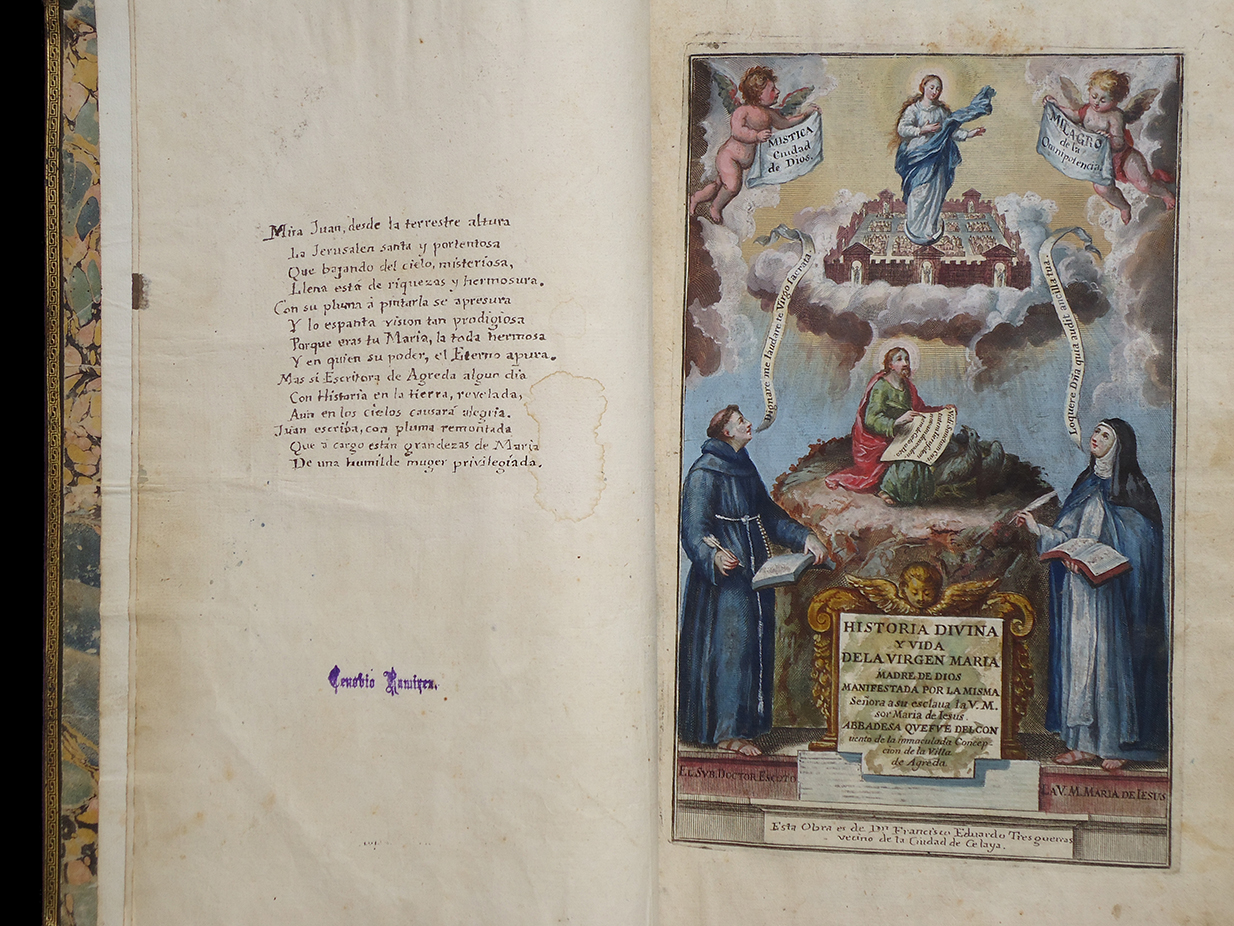 Mira Juan, desde la terrestre altura
La Jerusalen santa y portentosa
Que bajando del cielo, misteriosa,
Llena está de riquezas y hermosura.
Con su pluma á pintarla se apresura
Y lo espanta vision tan prodigiosa
Porque eras tu Maria, la toda hermosa
Y en quien su poder, el Eterno apura.
Mas si Escritora de Agreda algun dia
Con Historia en la tierra, revelada,
Aun en los cielos causará alegria.
Juan escriba, con pluma remontada
Que á cargo están grandezas de Maria
De una humilde muger privilegiada.
Cenobio Ramirez.
MISTICA
Ciudad
de Dios.
MILAGRO
de la
Omnipotencia
Dignare me laudare te Virgo sacrata.
Loquere Dña quia audit ancilla tua.
HISTORIA DIVINA
Y VIDA
DE LA VIRGEN MARIA
MADRE DE DIOS
MANIFESTADA POR LA MISMA
Señora a su esclaua la V. M.
sor Maria de Iesus
ABBADESA QUE FVE DEL CON
uento de la inmaculada Concep-
cion de la Villa
de Agreda
EL SVB. DOCTOR ESCOTO
LA V. M. MARIA DE IESUS
Esta Obra es de Dn. Francisco Eduardo Tresguerras
vecino de la Ciudad de Celaya.